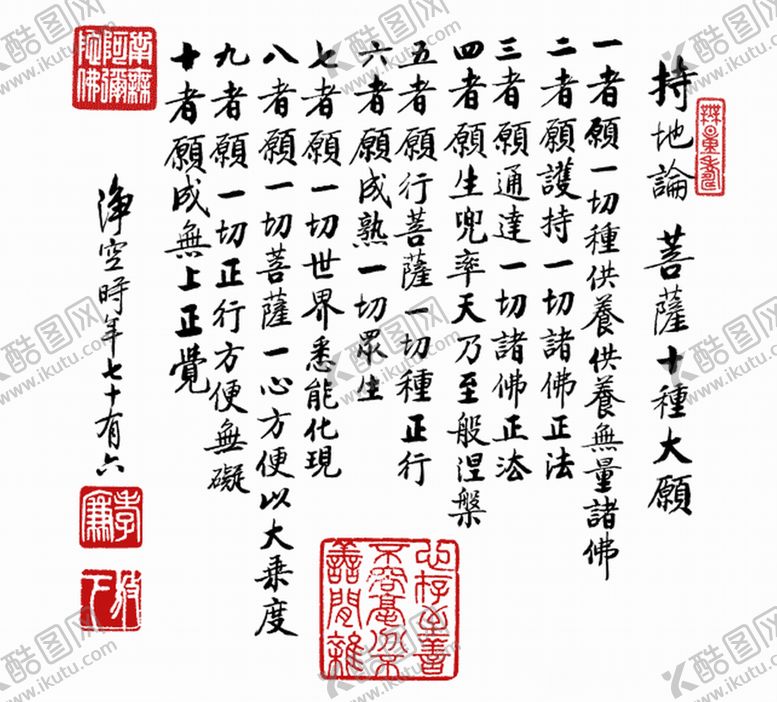 無量壽
持地論 菩薩十種大願
一者願一切種供養供養無量諸佛
二者願護持一切諸佛正法
三者願通達一切諸佛正法
四者願生兜率天乃至般涅槃
五者願行菩薩一切種正行
六者願成熟一切眾生
七者願一切世界悉能化現
八者願一切菩薩一心方便以大乘度
九者願一切正行方便無礙
十者願成無上正覺
淨空時年七十有六
南無
阿彌
陀佛
不容毫分不
善間雜
酷图网
www.ikutu.com